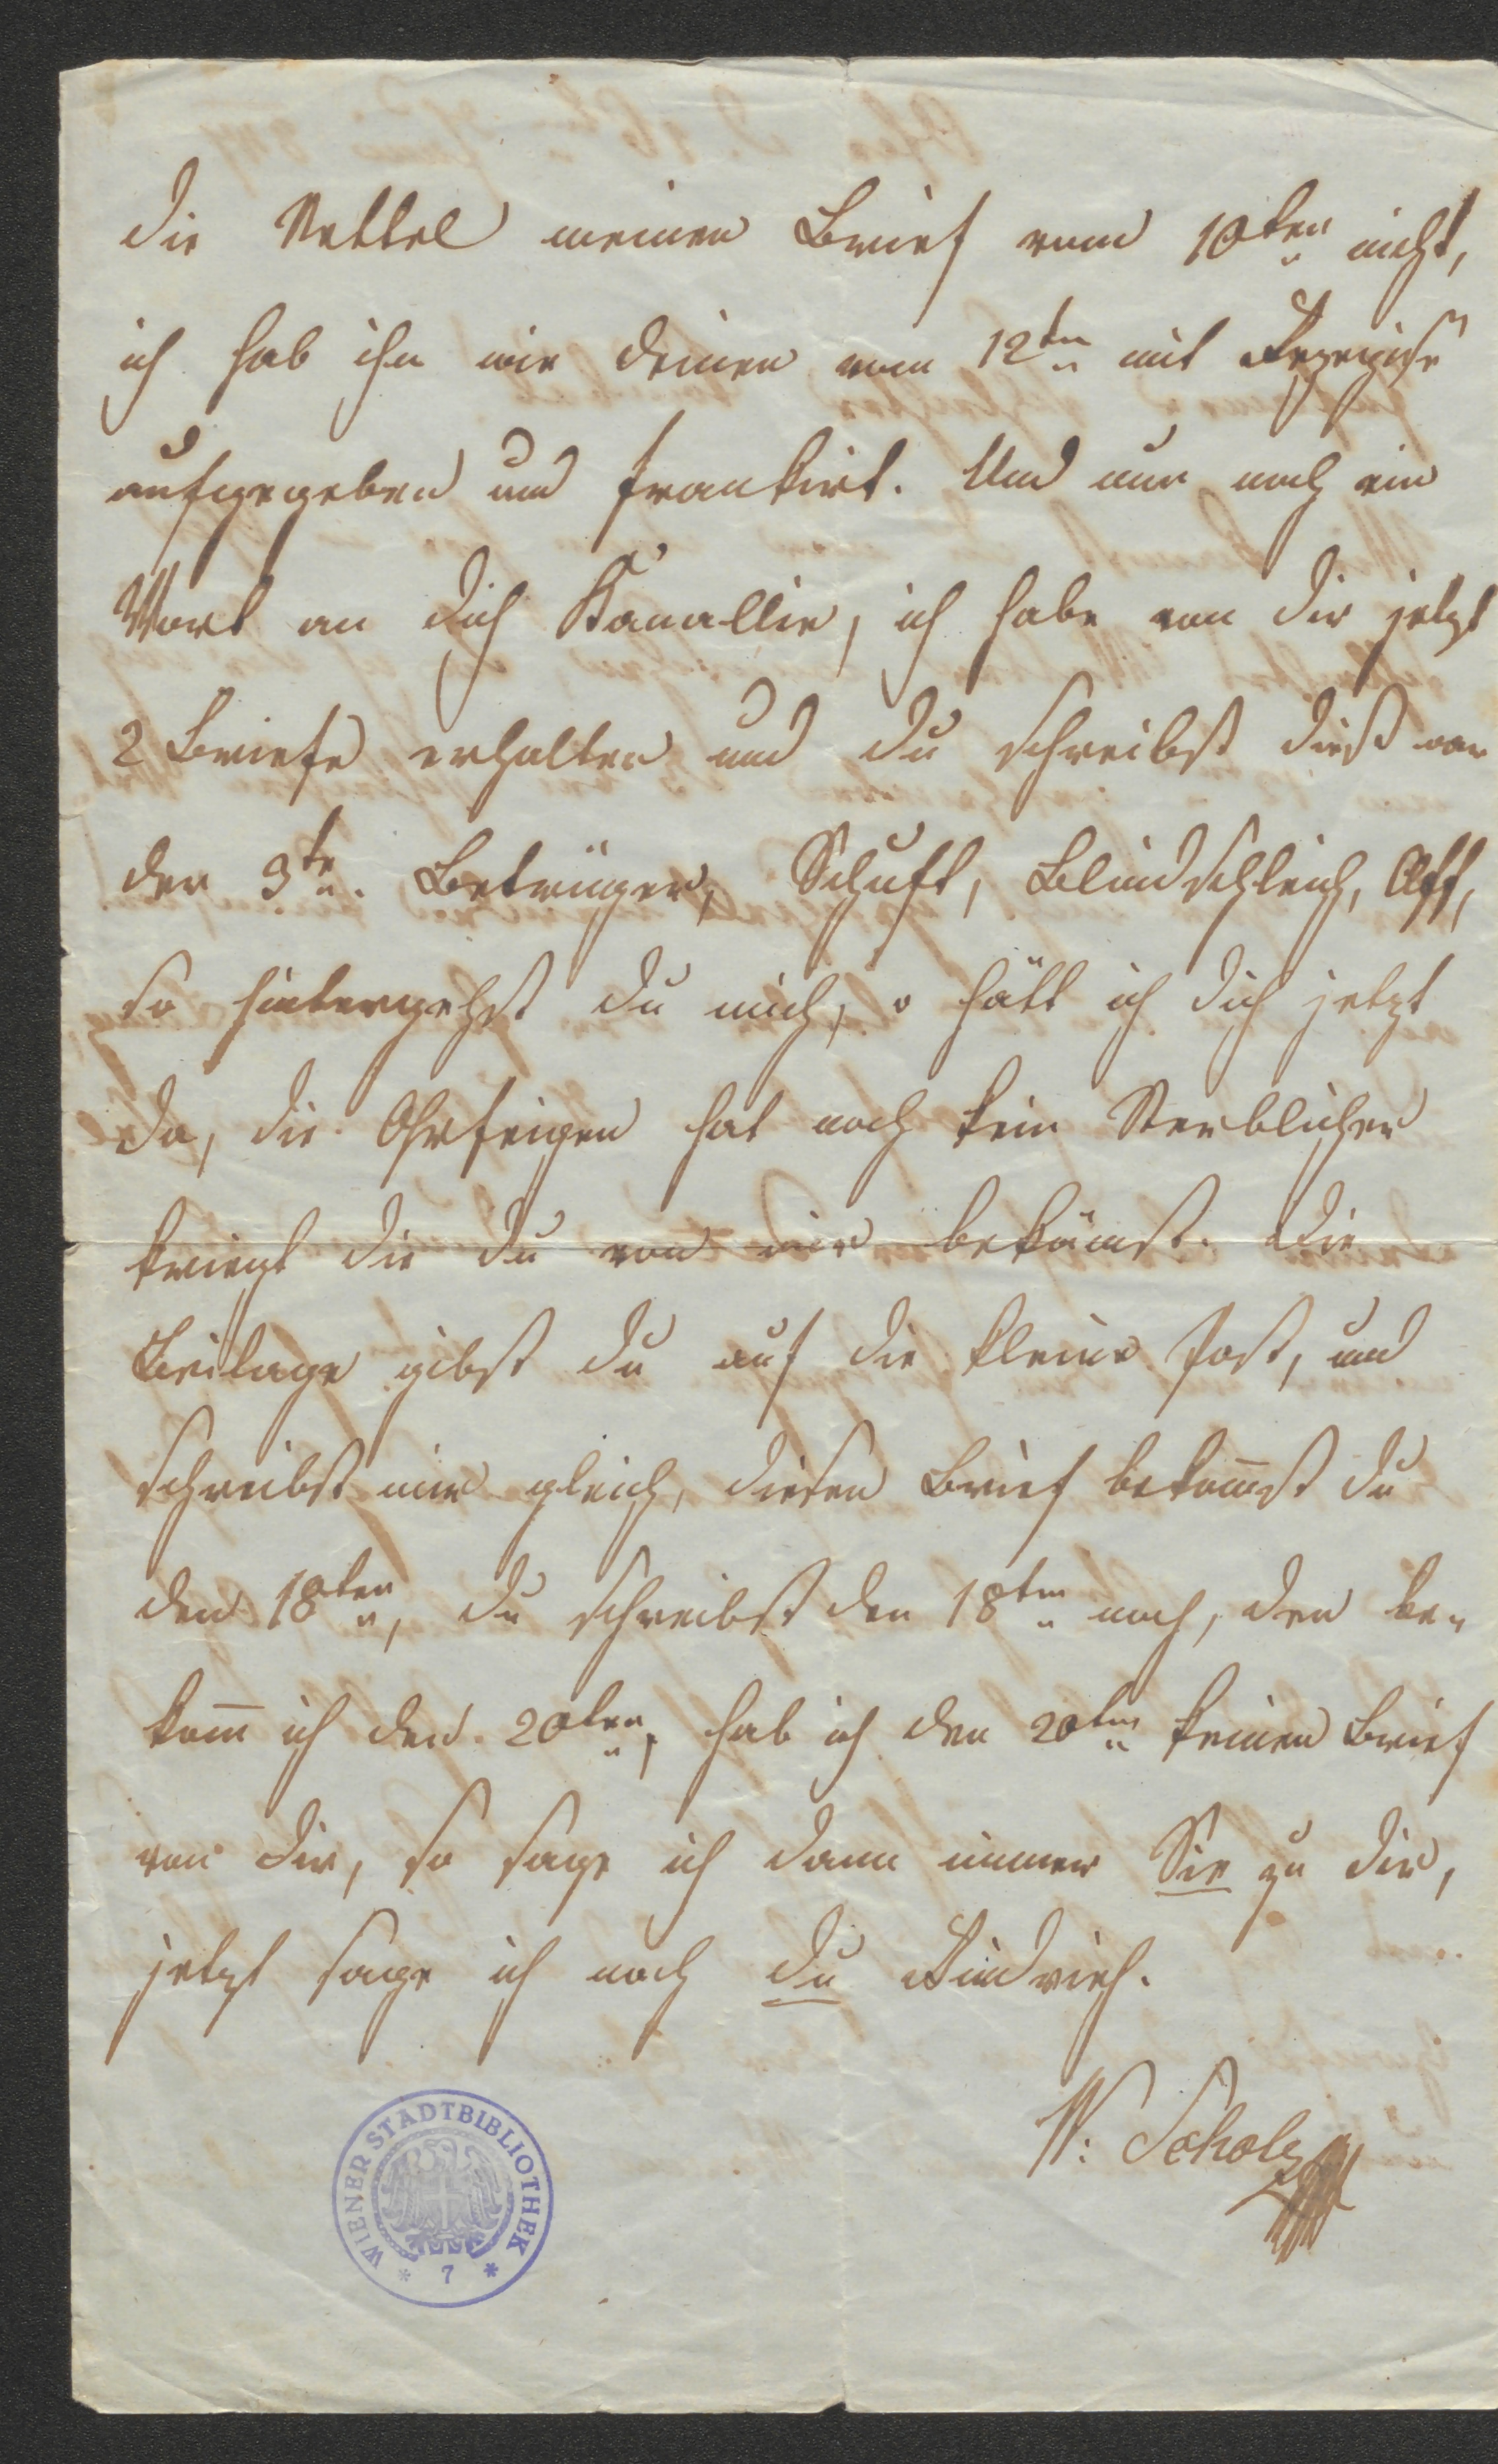 die Vettel meinen Brief vom 10ten nicht,
ich hab ihn wie deinen vom 12ten mit Rezepisse
aufgegeben und frankirt. Und nur noch ein
Wort an dich Kanallie, ich habe von dir jetzt
2 Briefe erhalten und du schreibst dieß war
der 3te. Betrüger, Schuft, Blindschleich, Aff,
so hintergehst du mich, o hätt ich dich jetzt
da, die Ohrfeigen hat noch kein Sterblicher
kriegt die du von mir bekämst. Die
Beilage gibst du auf die kleine Post, und
schreibst mir gleich, diesen Brief bekom̄st du
den 18ten, du schreibst den 18ten noch, den be-
kom̄ ich den 20ten, hab ich den 20ten keinen Brief
von dir, so sage ich dann immer Sie zu dir,
jetzt sage ich noch du Rindvieh.
W: Scholz
WIENER STADTBIBLIOTHEK
* 7 *